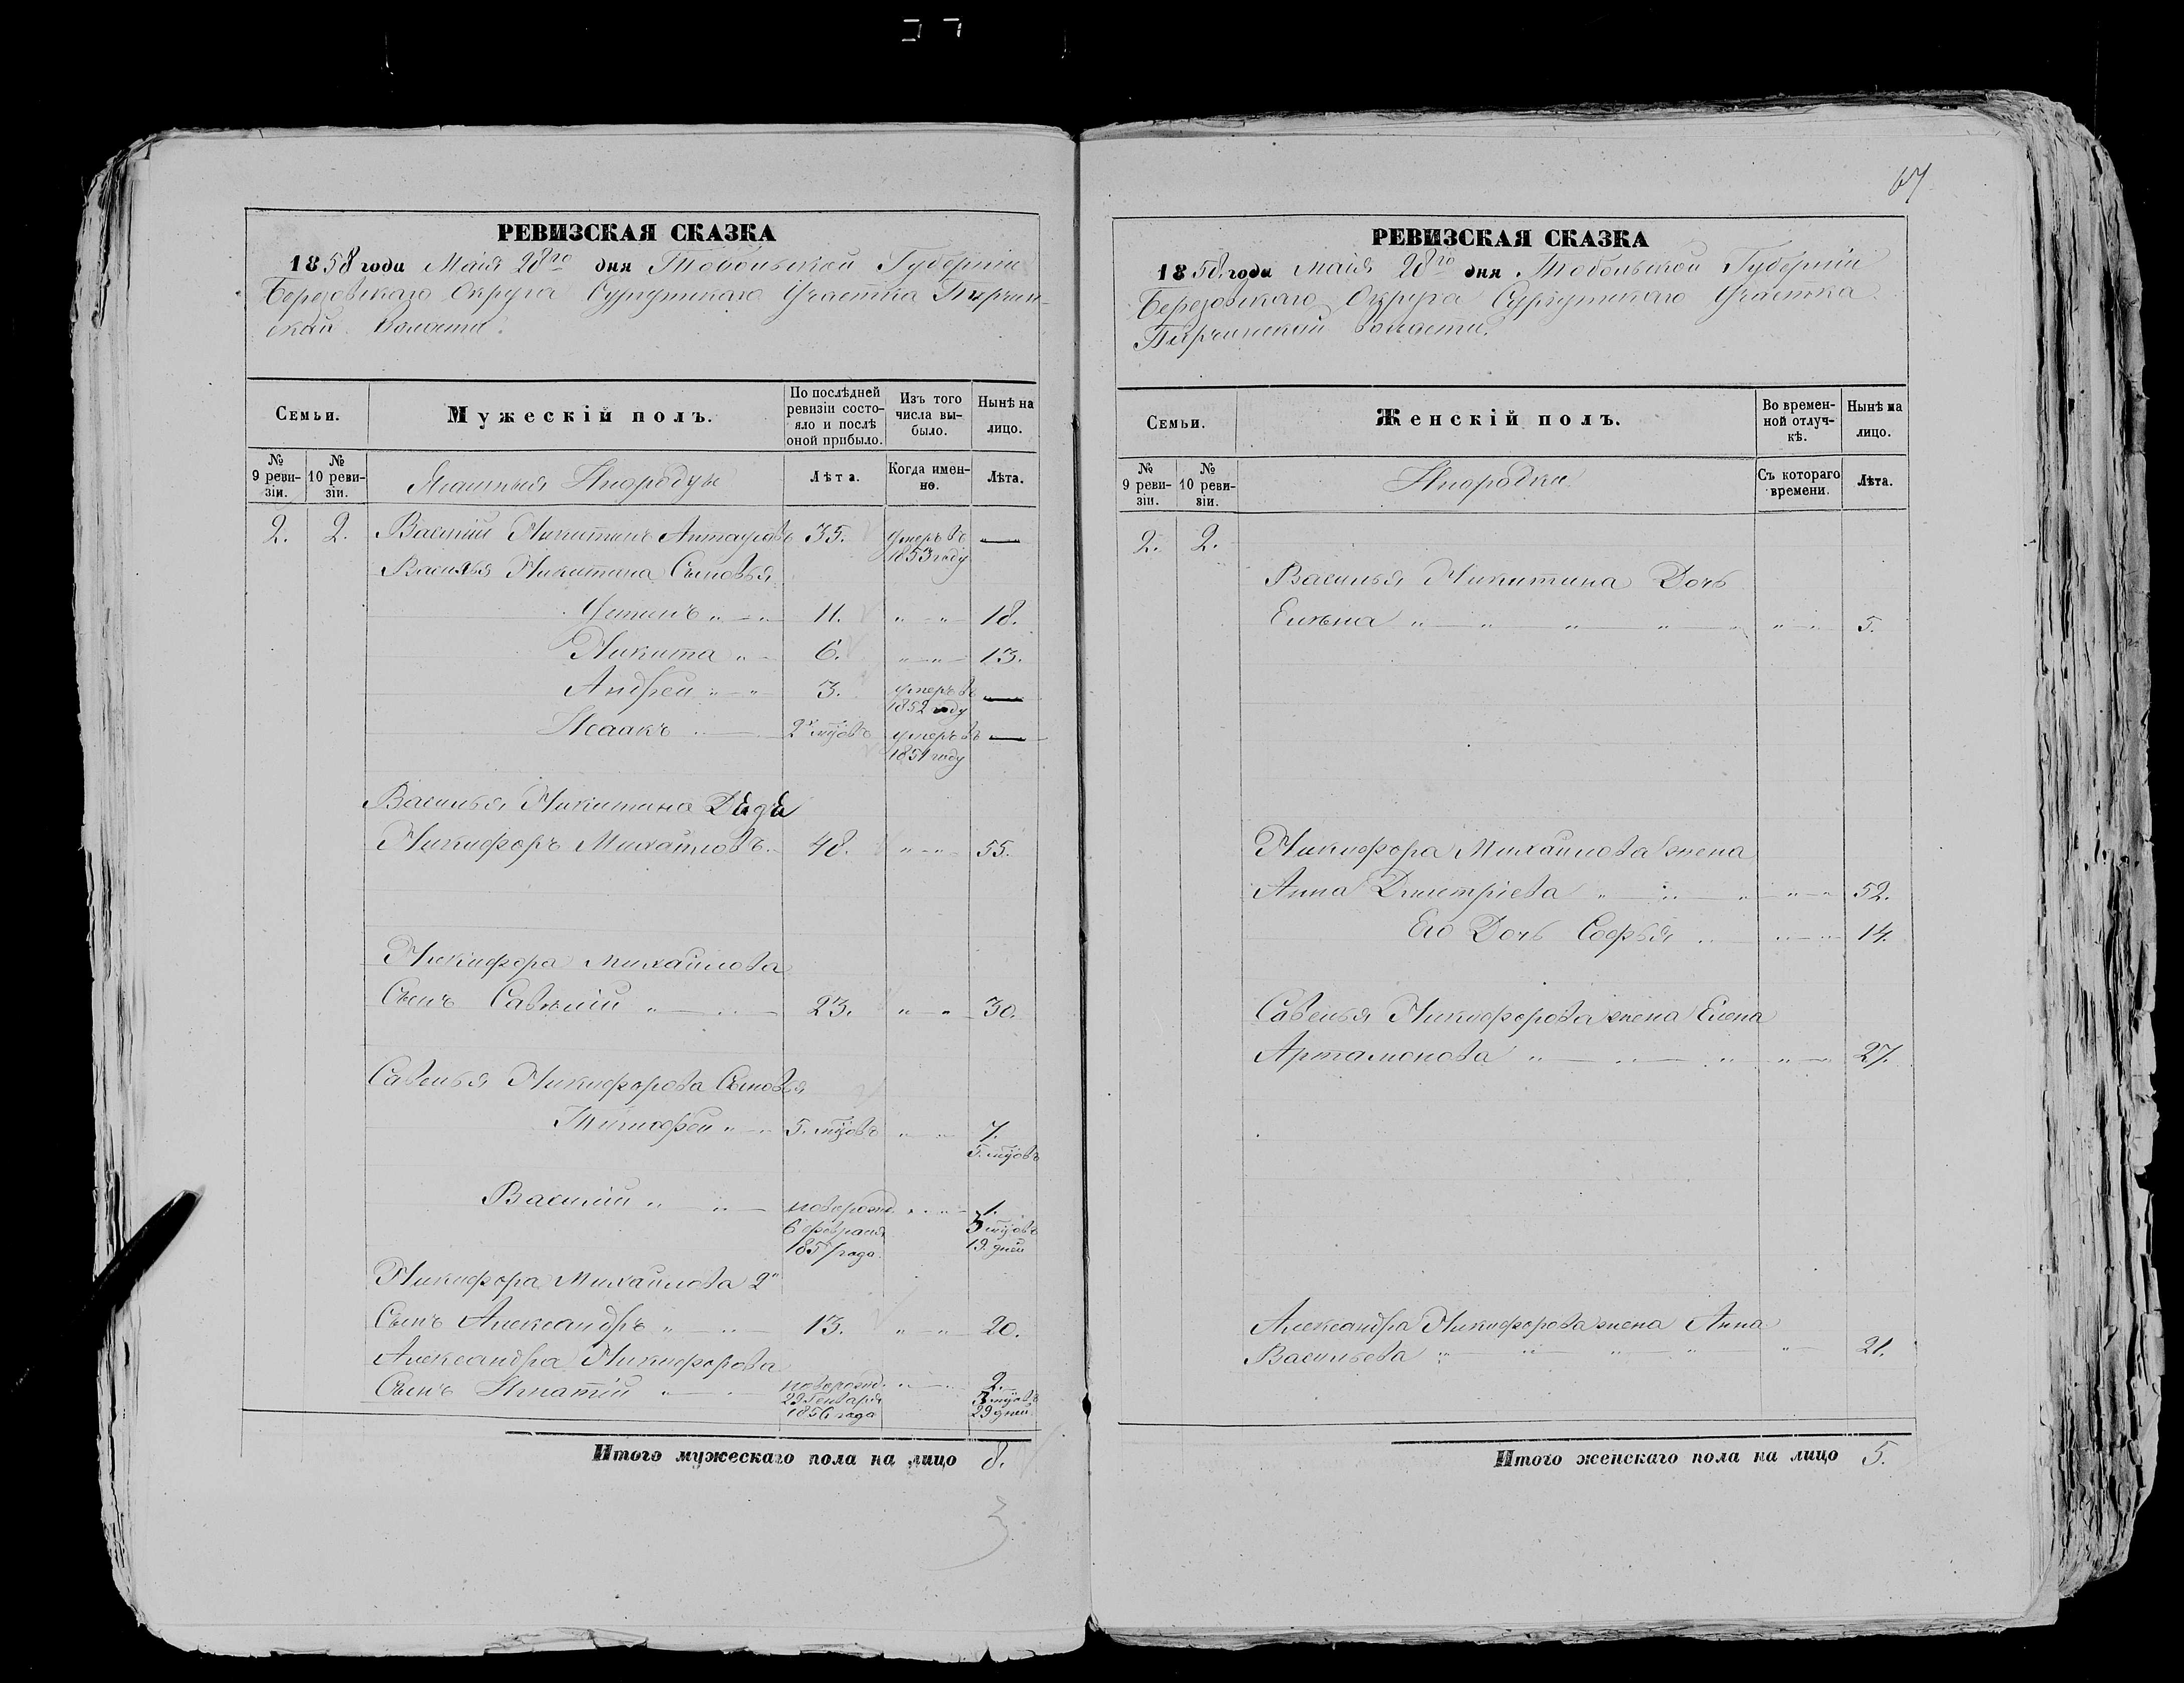 67
РЕВИЗСКАЯ СКАЗКА
1858 года Маія 28го дня Тобольской Губерніи
Березовскаго Округа Сургутскаго Участка Пирчин-
ской Волости.
Семьи.
Мужескій полъ.
По послѣдней ревизіи состо-яло и послѣ оной прибыло.
Изъ того числа вы-было.
Нынѣ на лицо.
№ 9 реви-зіи.
№ 10 реви-зіи.
Ясашныя Инородцы
Лѣта.
Когда имен-но.
Лѣта.
2. 2. Василій Никитинъ 35. умеръ въ 1853 году —
Василья Никитина Сыновья
Устинъ „ — „ 11. „ — „ 18.
Никита „ — 6. „ — „ 13.
Андрей „ — „ 3. умеръ въ 1852 году —
Исаакъ „ — 2х мцовъ умеръ въ 1851 году —
Василья Никитина Дядя
Никифоръ Михайловъ. 48. „ — „ 55.
Никифора Михайлова
Сынъ Савелій „ — „ — 23. „ — „ 30.
Савелья Никифорова Сыновья
Тимофей „ — „ 5. мцовъ „ — „ 7. 5. мцовъ
Василій „ — „ — новорожд. 6 февраля 1857 года. „ — „ 1. 3 мцовъ 19. дней
Никифора Михайлова 2й
Сынъ Александръ „ — „ — 13. „ — „ 20.
Александра Никифорова
Сынъ Игнатій „ — „ новорожд. 29 Генваря 1856 года „ — „ 2. 3 мцовъ 29 дней
Итого мужескаго пола на лицо 8.
РЕВИЗСКАЯ СКАЗКА
1858 года Маія 28го дня Тобольской Губерніи
Березовскаго Округа Сургутскаго Участка
Пирчинской Волости.
Семьи.
Женскій полъ.
Во времен-ной отлуч-кѣ.
Нынѣ на лицо.
№ 9 реви-зіи.
№ 10 реви-зіи.
Инородки
Съ котораго времени.
Лѣта.
2. 2.
Василья Никитина Дочь
Елѣна „ — „ — „ — „ — „ „ — „ 5.
Никифора Михайлова жена
Анна Дмитріева „ — „ — „ „ — „ 52.
Его Дочь Софья „ — „ — „ 14.
Савелья Никифорова жена Елена
Артамонова „ — „ — „ „ — „ 27.
Александра Никифорова жена Анна
Васильева „ — „ — „ — „ „ — 21.
Итого женскаго пола на лицо 5.